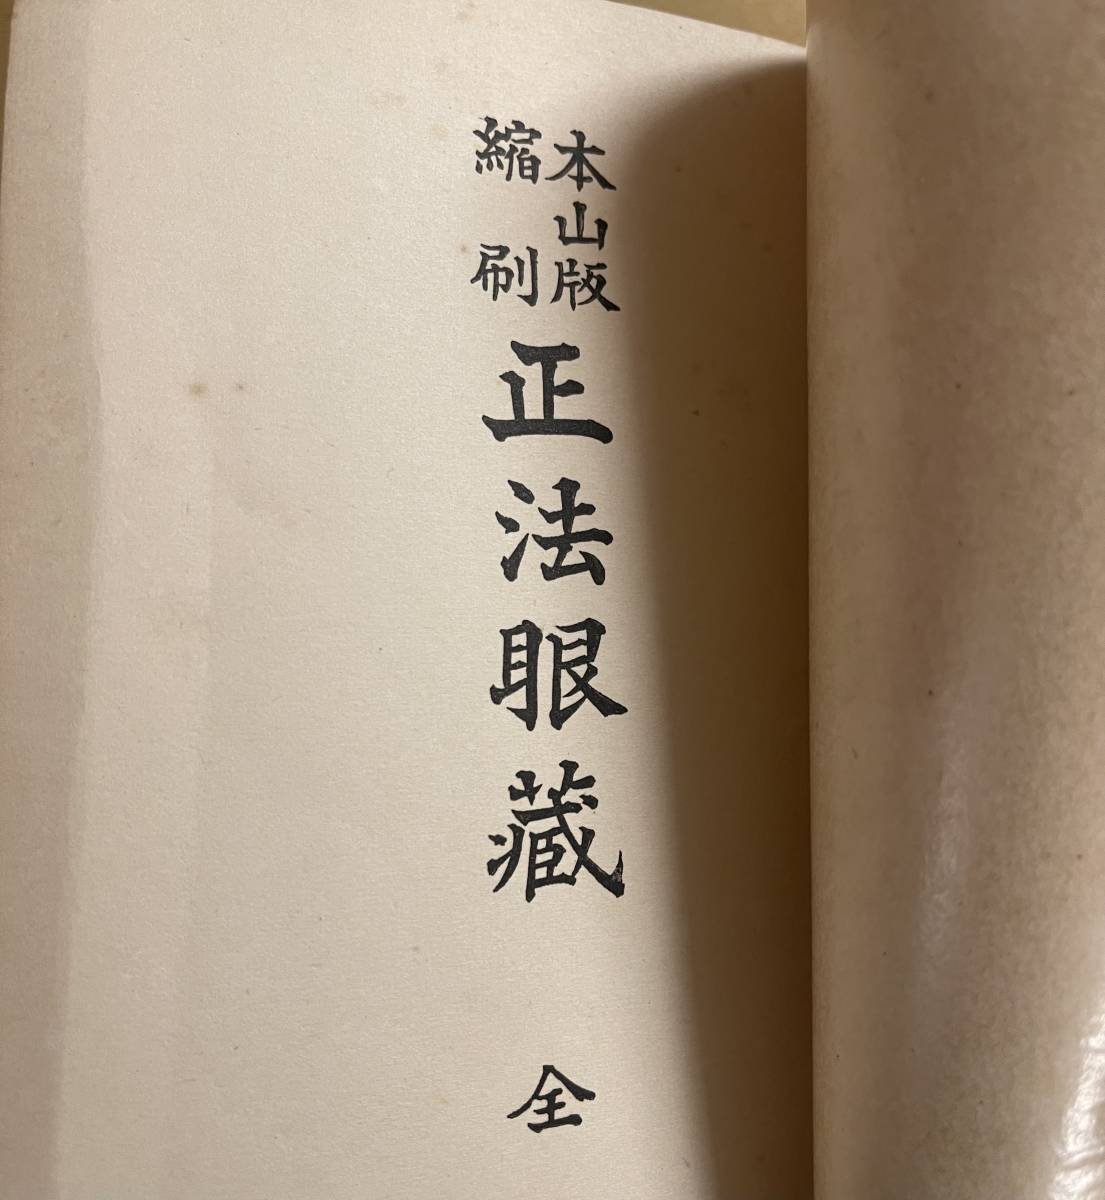 本山版
縮刷
正法眼藏
全